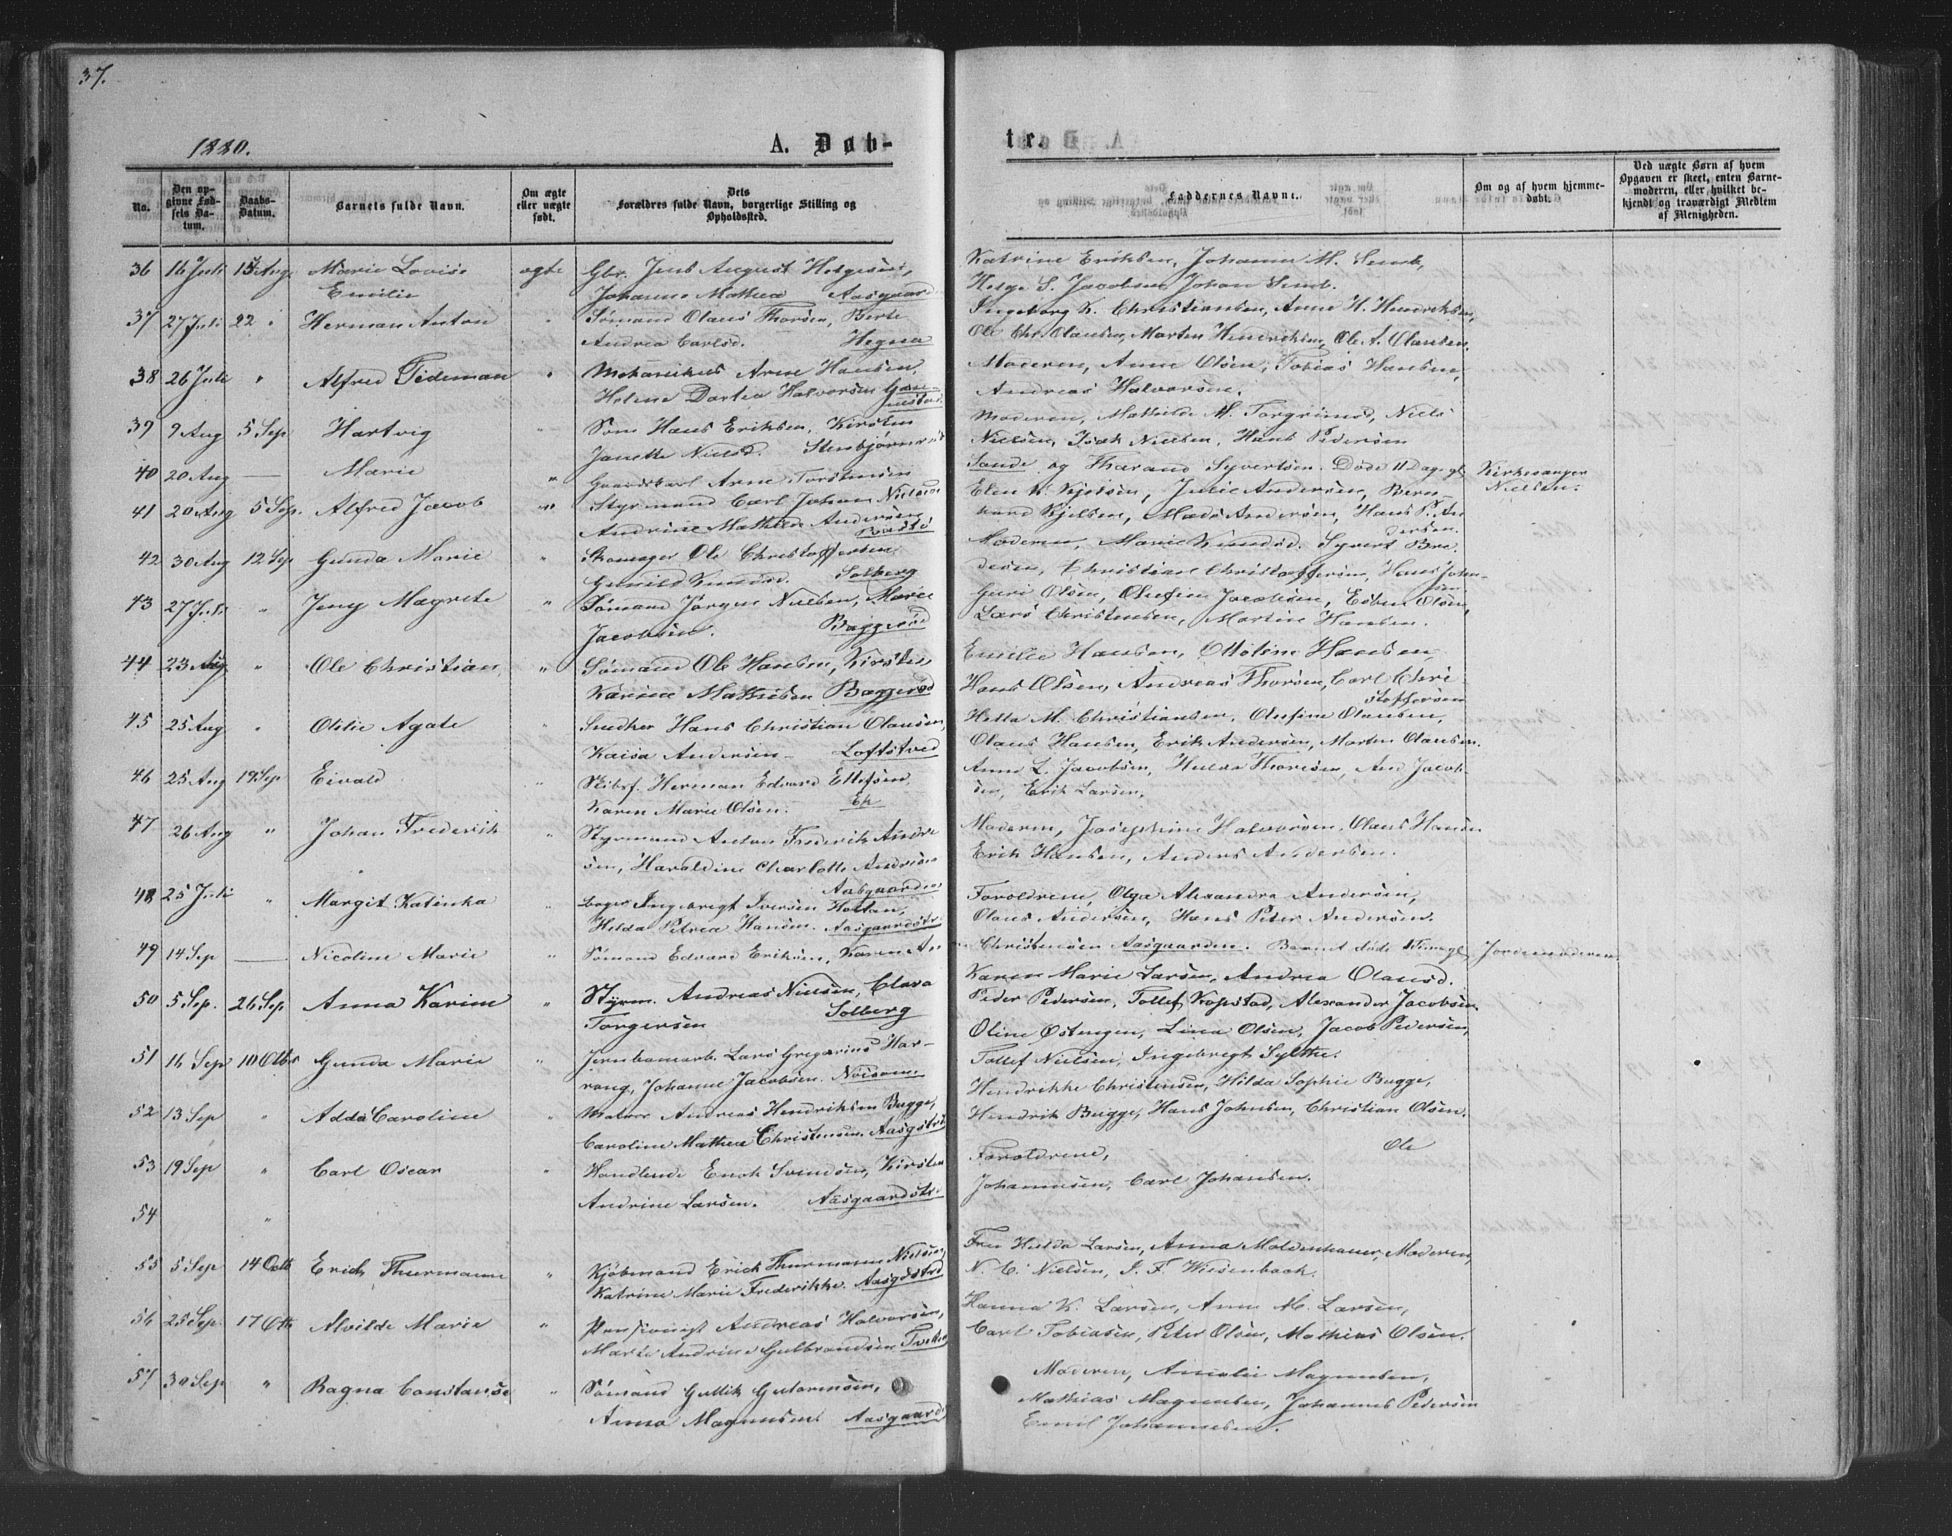 37.
1880.
A. Døb-
ter.
No.
Den opgivne Fødsels Datum.
Daabs-Datum.
Barnets fulde Navn.
Om ægte eller uægte født.
Dets Forældres fulde Navn, borgerlige Stilling og Opholdssted.
Faddernes Navne.
Om og af hvem hjemmedøbt.
Ved uægte Børn af hvem Opgaven er skeet, enten Barnemoderen, eller hvilket bekjendt og troværdigt Medlem af Menigheden.
36 16 Juli 15 Aug Marie Lovise ægte Gbr. Jens August Helgesen, Katrine Eriksen, Johanne M. Semb,
Emilie Johanne Mathea Aasgaard Helge S. Jacobsen Johan Semb.
37 27 Juli 22 Herman Anton Sømand Olaus Thorsen, Berte Ingeborg K. Christiansen, Anne H. Hendriksen,
Andrea Carlsd. Hegna Ole Chr. Olausen, Morten Hendriksen, Ole A. Olausen.
38 26 Juli " Alfred Tideman " Mekanikus Arne Hansen, Moderen, Anne Olsen, Tobias Hansen,
Helene Dortea Halvorsen Andreas Halvorsen.
39 9 Aug 5 Sep Hartvig Søm Hans Eriksen, Kirsten Moderen, Mathilde M. Torgrimsd, Niels
Janette Nielsd. Nielsen, Isak Nielsen, Hans Pedersen
40 20 Aug — Marie " Gaardskarl Arne Torstensen Sande og Tharand Syvertsen. Døde 11 Dage gl Kirkesanger
Nielsen.
41 20 Aug 5 Sep. Alfred Jacob " Styrmand Carl Johan Nielsen Elen K. Kjelsen, Julie Andersen, Bern-
Andrine Mathilde Andersen hard Kjelsen, Mads Andersen, Hans P. An
dersen.
42 30 Aug 12 Sep Gunda Marie " Skomager Ole Christoffersen Moderen, Marie Knudsd. Syvert Bre
Gunild Knudsd. Solberg desen, Christian Christoffersen, Hans John-
sen
43 27 Juli " Jeny Magrete " Sømand Jørgen Nielsen, Marie Guri Olsen, Olufine Jacobsen, Esben Olsen,
Jacobsen. Baggerød Lars Christensen, Martine Hansen.
44 23 Aug " Ole Christian " Sømand Ole Hansen, Kirsten Emilie Hansen, Ottoline Hansen,
Karine Mathisen Baggerød Hans Olsen, Andreas Thorsen, Carl Chri
stoffersen
45 25 Aug " Otilie Agate Snedker Hans Christian Olausen, Hella M. Christiansen, Olufine Olausen,
Kaisa Andersen Loftstved Olaus Hansen, Erik Andersen, Morten Olausen.
46 25 Aug 19 Sep Eivald Skibsf. Herman Edvard Ellefsen, Anne L. Jacobsen, Hulda Thoresen, And Jacob-
Karen Marie Olsen. Ek sen, Erik Larsen,
47 26 Aug " Johan Frederik " Styrmand Anton Frederik Andre Moderen, Josephine Halvorsen, Olaus Hansen
sen, Haraldine Charlotte Andresen Erik Hansen, Anders Andersen.
Aasgaardstr
48 25 Juli " Margit Katinka Bager Ingebregt Iversen Holtan, Forældrene, Olga Alexandra Andersen,
Hilda Petrea Hansen. Aasgaardstr Olaus Andersen, Hans Peter Andersen.
49 14 Sep — Nicoline Marie " Sømand Edvard Eriksen, Karen An Christensen Aasgaarden. Barnet døde Jordemoderen.
Karen Marie Larsen, Andrea Olausd.
50 5 Sep. 26 Sep Anna Karine " Styrm. Andreas Nielsen, Clara Peder Pedersen, Tollef Kopstad, Alexander Jacobsen
Torgersen Solberg Oline Østengen, Lina Olsen, Jacob Pedersen,
51 16 Sep 10 Otbr Gunda Marie " Jernbanearb. Lars Gregorius Har- Tollef Nielsen, Ingebregt Sylthe.
rang, Johanne Jacobsen. Hendrikke Christensen, Hilda Sophie Bugge,
52 13 Sep " Adda Caroline " Matros Andreas Hendriksen Bugge, Hendrik Bugge, Hans Johnsen, Christian Olsen.
Caroline Mathea Christensen. Aasgstrd
53 19 Sep " Carl Oscar " Handlende Enok Svendsen, Kirsten Forældrene, Ole
Andrine Larsen. Aasgaardstr Johannesen, Carl Johansen.
54 "
55 5 Sep 14 Octb Erich Thurmann " Kjøbmand Erich Thurmann Nielsen, Fru Hulda Larsen, Anna Moldenhauer, Moderen,
Katrine Marie Frederikke. Aasgdstrd N. C. Nielsen, I. F. Wiesenbach.
56 25 Sep. 17 Otb Alvilde Marie " Andreas Halvorsen, Hanna K. Larsen, Anne M. Larsen,
Marte Andrine Gulbrandsen Tveten Carl Tobiasen, Peter Olsen, Mathias Olsen.
57 30 Sep " Ragna Constanse " Sømand Gullik Guttormsen, Moderen, Amalie Magnusen,
Anna Magnusen. Aasgaard Mathias Magnusen, Johannes Pedersen
Emil Johannesen.